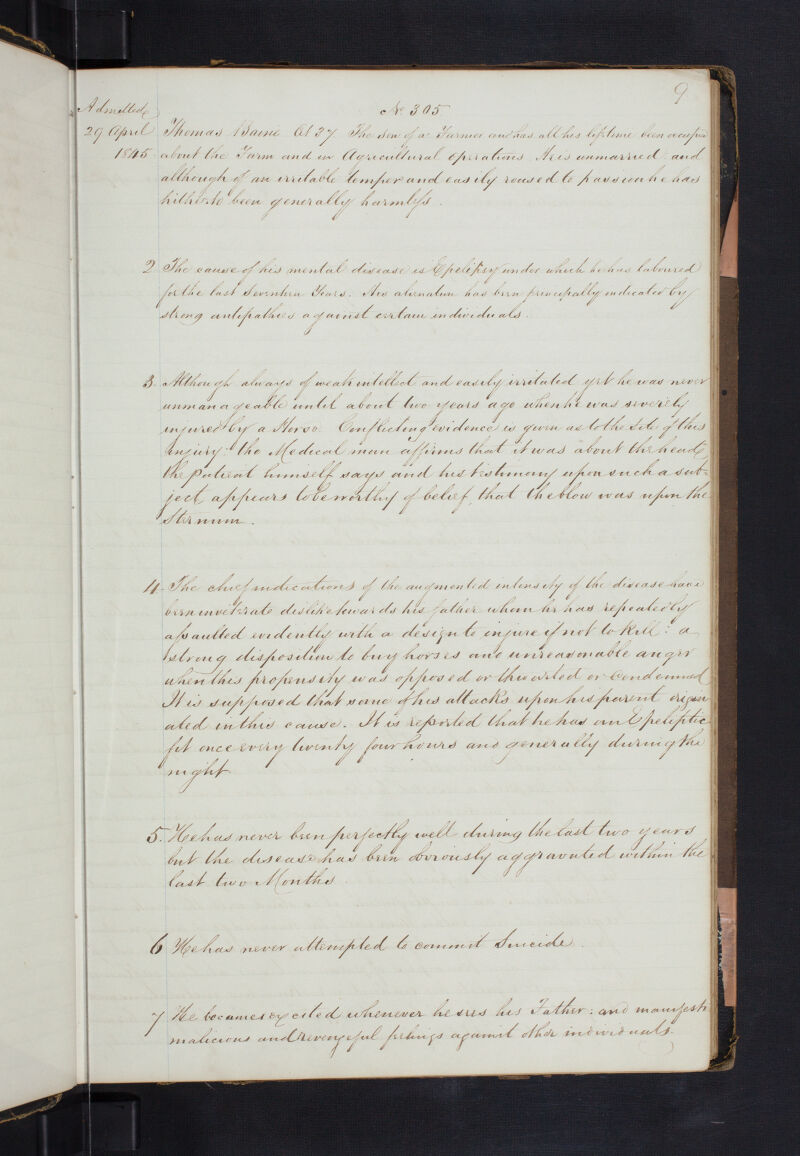 9
Admitted No 305
29 April Thomas Bain Æt 37 The son of a Farmer and has all his lifetime been occupied
1845 about the Farm and in Agricultural operations He is unmarried and
although of an irritable temper and easily roused to passion he has
hitherto been generally harmless.
2 The cause of his mental disease is Epelipsy under which he has laboured
for the last Seventeen Years. His alienation has been principally indicated by
strong antipathies against certain individuals.
3. Although always of weak intellect and easily irritated yet he was never
unmanageable until about two years ago when he was severely
injured by a Horse Conflicting evidence is given as to the Site of this
injury: the Medical man affirms that it was about the head:
the Patient himself says and his testimony upon such a sub-
ject appears to be worthy of belief, that the blow was upon the
Sternum.
4. The chief indications of the augmented intensity of the disease have
been inveterate dislike towards his father whom he has repeatedly
assaulted evidently with a design to injure if not to kill: a
strong disposition to buy horses and unreasonable anger
when this propensity was opposed or thwarted or condemned
It is supposed that some of his attacks upon his parent origin
ated in this cause. It is reported that he has an Epeleptic
fit once every twenty four hours and generally during the
night
5. He has never been perfectly well during the last two years
but the disease has been obviously aggravated within the
last two Months.
6 He has never attempted to commit Suicide.
7 He becomes excited whenever he sees his Father: and manifests
malicious and revengeful feelings against other individuals.